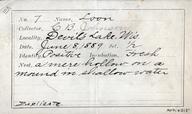 No. 7 Name, Loon
Collector, E B
Locality, Devil's Lake, Wis
Date, June 8, 1889 Set 1/2
Identity, Positive Incubation, Fresh
Nest, a mere hollow on a
mound in shallow water
Duplicate